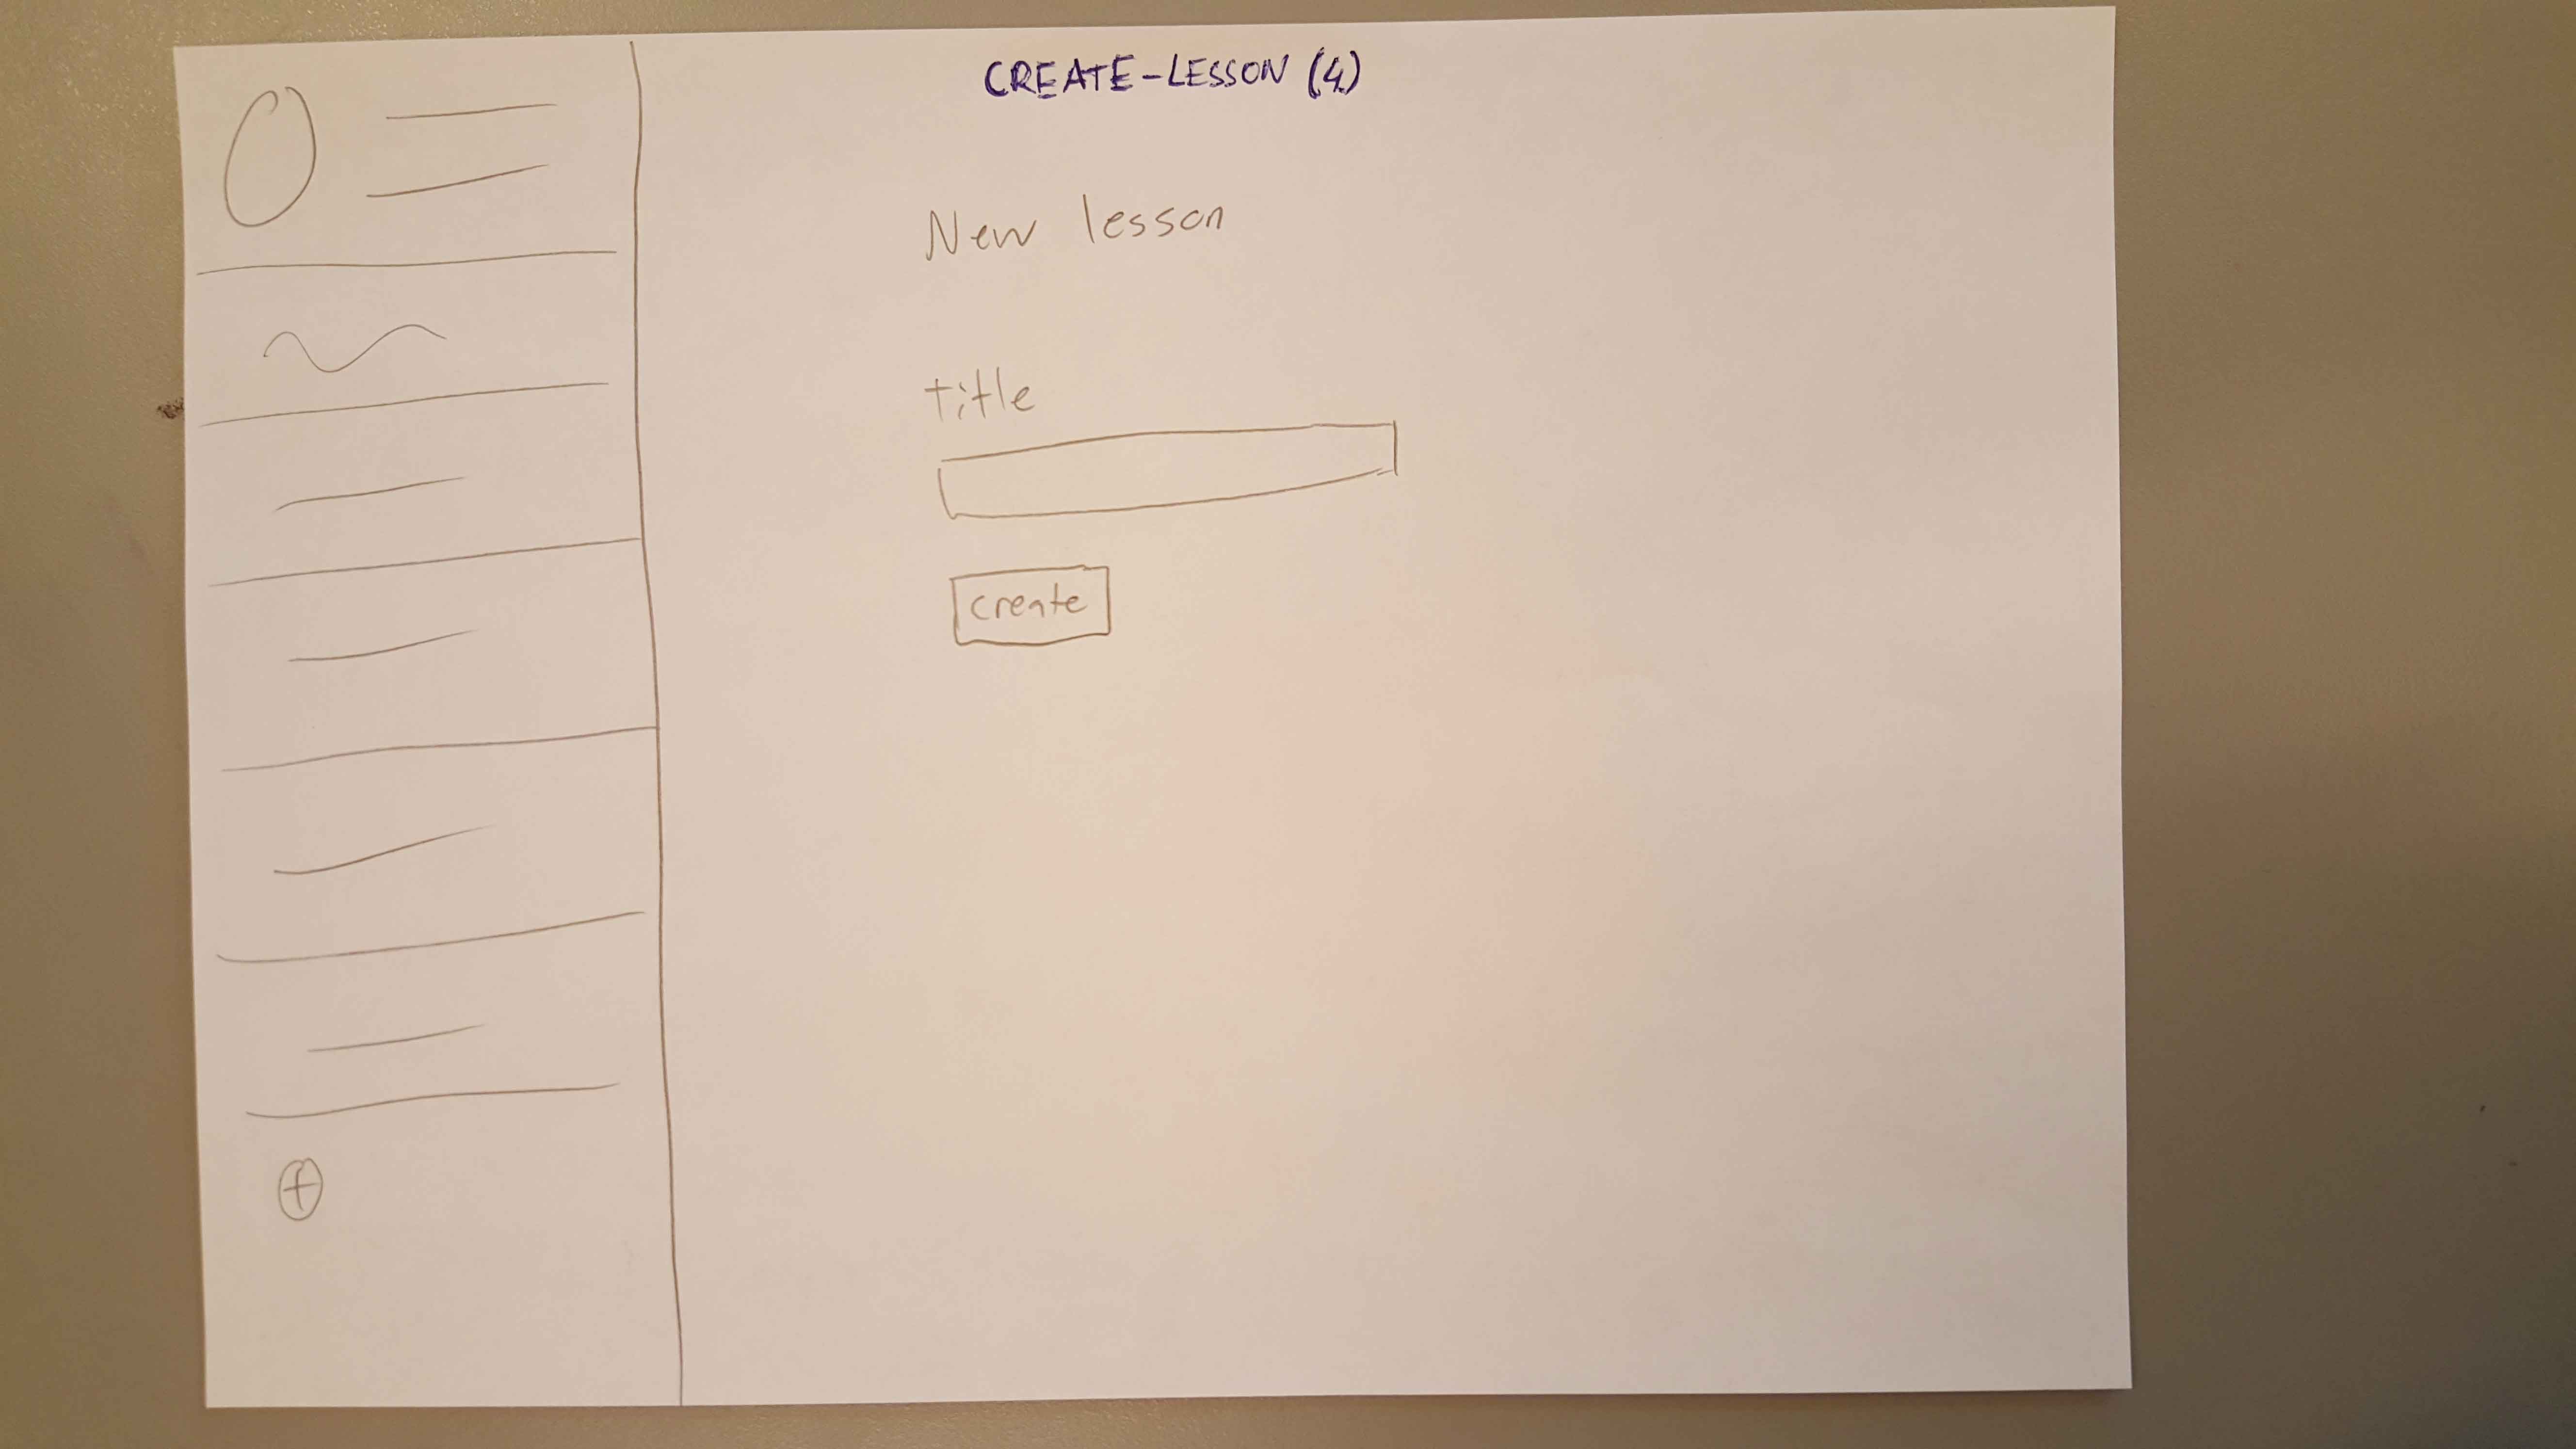 CREATE-LESSON (4)
New lesson
title
create
+